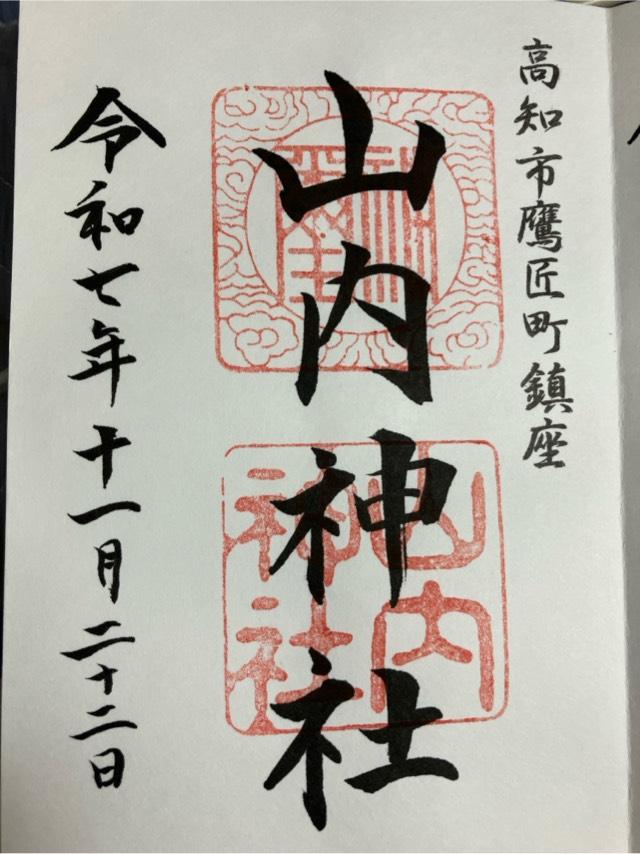 高知市鷹匠町鎮座
山内神社
山内
神社
令和七年十一月二十二日